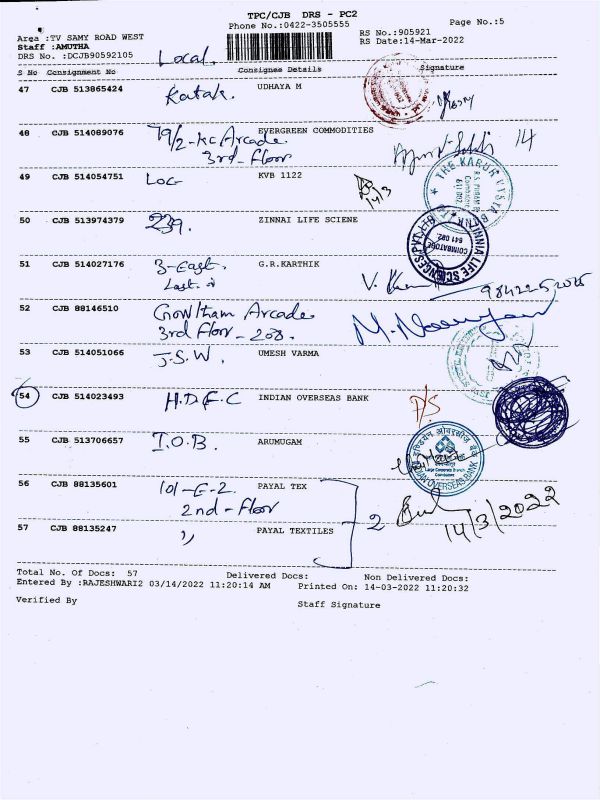 TPC/CJB DRS - PC2
Phone No.:0422-3505555
Page No.:5
Area :TV SAMY ROAD WEST
RS No.:905921
Staff :AMUTHA
RS Date:14-Mar-2022
DRS No. :DCJB90592105
Local.
S No Consignment No Consignee Details Signature
47 CJB 513865424 Katak. UDHAYA M
48 CJB 514089076 79/2-KC Arcade EVERGREEN COMMODITIES 14
3rd-Floor
49 CJB 514054751 Loc KVB 1122 14/3
THE KARUR VYSYA BANK
50 CJB 513974379 239. ZINNAI LIFE SCIENE
ZINNIA LIFE SCIENCES PVT. LTD
COIMBATORE
641 002
51 CJB 514027176 3-East. G.R.KARTHIK V.
Last
52 CJB 88146510 Gowtham Arcade
3rd Floor-208.
53 CJB 514051066 J.S.W. UMESH VARMA
54 CJB 514023493 H.D.F.C INDIAN OVERSEAS BANK
55 CJB 513706657 I.O.B. ARUMUGAM
INDIAN OVERSEAS BANK
56 CJB 88135601 101-E-2. PAYAL TEX
2nd-Floor
2
14/3/2022
57 CJB 88135247 ,, PAYAL TEXTILES
Total No. Of Docs: 57 Delivered Docs: Non Delivered Docs:
Entered By :RAJESHWARI2 03/14/2022 11:20:14 AM Printed On: 14-03-2022 11:20:32
Verified By Staff Signature